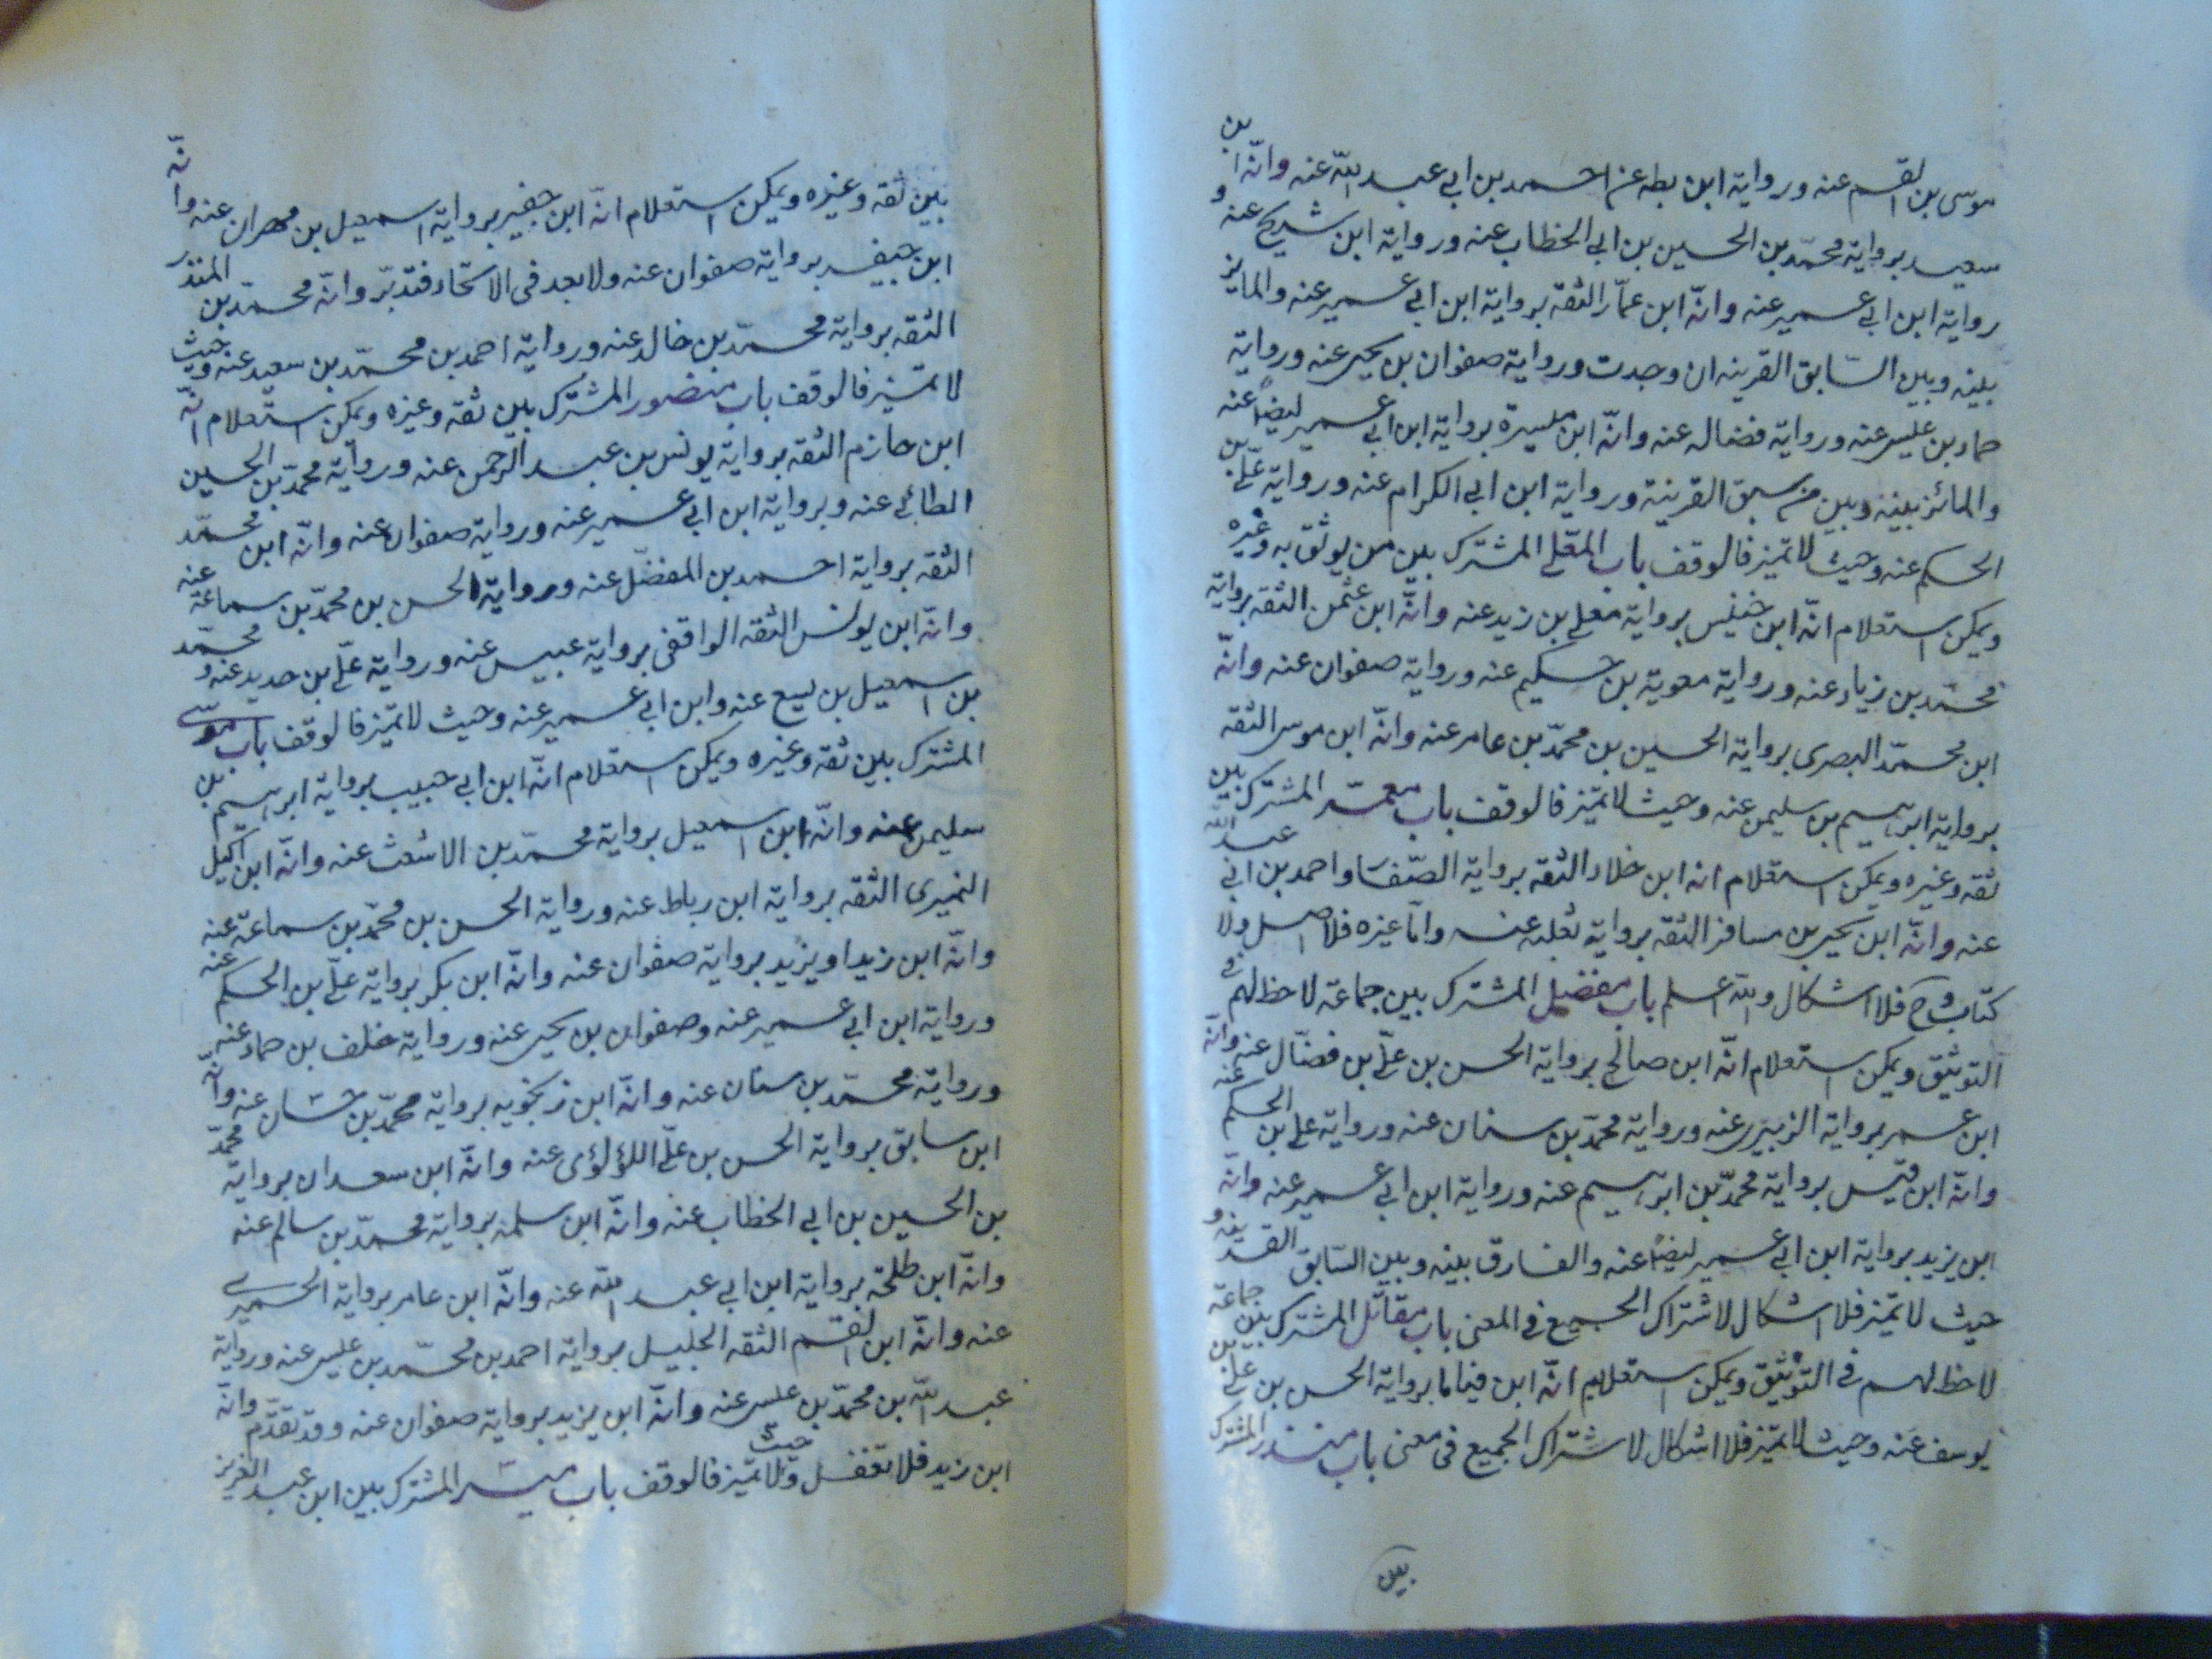 موسى بن القسم عنه ورواية ابن بطه عن احمد بن ابي عبد الله عنه وانّه ابن
سعيد برواية محمّد بن الحسين بن ابي الخطاب عنه ورواية ابن شريح عنه و
رواية ابن ابي عمير عنه وانّه ابن عمّار الثقة برواية ابن ابي عمير عنه والمايز
بينه وبين السّابق القرينه ان وجدت ورواية صفوان بن يحيى عنه ورواية
حماد بن عيسى عنه ورواية فضاله عنه وانّه ابن ميسرة برواية ابن ابي عمير ايضاً عنه
والمائز بينه وبين من سبق القرينة ورواية ابن ابي الكرام عنه ورواية علّي بن
الحكم عنه وحيث لا تميّز فالوقف باب المعّلى المشترك بين من يوثق به وغيره
ويمكن استعلام انّه ابن خنيس برواية معلى بن زيد عنه وانّه ابن عثمن الثقه برواية
محمّد بن زياد عنه ورواية معوية بن حكيم عنه ورواية صفوان عنه وانّه
ابن محمّد البصرى برواية الحسين بن محمّد بن عامر عنه وانّه ابن موسى الثقه
برواية ابرٰهيم بن سليمن عنه وحيث لا تميّز فالوقف باب معمّر المشترك بين
ثقه وغيره ويمكن استعلام انه ابن خلاد الثقه برواية الصّفار واحمد بن ابي عبد الله
عنه وانّه ابن يحيى بن مسافر الثقه برواية ثعلبه عنه وامّا غيره فلا اصل ولا
كتاب وح فلا اشكال والله اعلم باب مفضل المشترك بين جماعة لا حظ لهم في
التوثيق ويمكن استعلام انّه ابن صالح برواية الحسن بن علّي بن فضّال عنه وانّه
ابن عمر برواية الزبيرى عنه ورواية محمّد بن سنان عنه ورواية على بن الحكم عنه
وانّه ابن قيس برواية محمّد بن ابرٰهيم عنه ورواية ابن ابي عمير عنه وانّه
ابن يزيد برواية ابن ابي عمير ايضاً عنه والفارق بينه وبين السّابق القرينه و
حيث لا تميّز فلا اشكال لاشتراك الجميع في المعنى باب مقاتل المشترك بين جماعة
لاحظ لهم في التّوثيق ويمكن استعلام انّه ابن قياما برواية الحسن بن علّي بن
يوسف عنه وحيث لا تميّز فلا اشكال لاشتراك الجميع في معنى باب منذر المشترك
بين
بين ثقه وغيره ويمكن استعلام انّه ابن جفير برواية اسمعيل بن مهران عنه وانّه
ابن جيفر برواية صفوان عنه ولا بعد في الاتّحاد فتدبّر وانّه محمّد بن المنذر
الثقه برواية محمّد بن خالد عنه ورواية احمد بن محمّد بن سعيد عنه وحيث
لا تميّز فالوقف باب منصور المشترك بين ثقه وغيره ويمكن استعلام انّه
ابن حازم الثقه برواية يونس بن عبد الرحمن عنه ورواية محمّد بن الحسين
الطائي عنه وبرواية ابن ابي عمير عنه ورواية صفوان عنه وانّه ابن محمّد
الثقه برواية احمد بن المفضّل عنه ورواية الحسن بن محمّد بن سماعة عنه
وانّه ابن يونس الثقه الواقفى برواية عبيس عنه ورواية علّي بن حديد عنه ومحمّد
بن اسمعيل بن بزيع عنه وابن ابي عمير عنه وحيث لا تميّز فالوقف باب موسى
المشترك بين ثقه وغيره ويمكن استعلام انّه ابن ابي حبيب برواية ابرٰهيم بن
سليمن عنه وانّه ابن اسمعيل برواية محمّد بن الاشعث عنه وانّه ابن اكيل
النميرى الثقه برواية ابن رباط عنه ورواية الحسن بن محمّد بن سماعة عنه
وانّه ابن زيد او يزيد برواية صفوان عنه وانّه ابن بكر برواية علّي بن الحكم عنه
ورواية ابن ابي عمير عنه وصفوان بن يحيى عنه ورواية خلف بن حماد عنه
ورواية محمّد بن سنان عنه وانّه ابن زنجويه برواية محمّد بن حسّان عنه وانّه
ابن سابق برواية الحسن بن علّي اللؤلؤى عنه وانّه ابن سعدان برواية محمّد
بن الحسين بن ابي الخطاب عنه وانّه ابن سلمة برواية محمّد بن سالم عنه
وانّه ابن طلحة برواية ابن ابي عبد الله عنه وانّه ابن عامر برواية الحميرى
عنه وانّه ابن القسم الثقه الجليل برواية احمد بن محمّد بن عيسى عنه ورواية
عبد الله بن محمّد بن عيسى عنه وانّه ابن يزيد برواية صفوان عنه وقد تقدّم وانّه
ابن زيد فلا تغفل وحيث لا تميّز فالوقف باب ميسّر المشترك بين ابن عبد العزيز